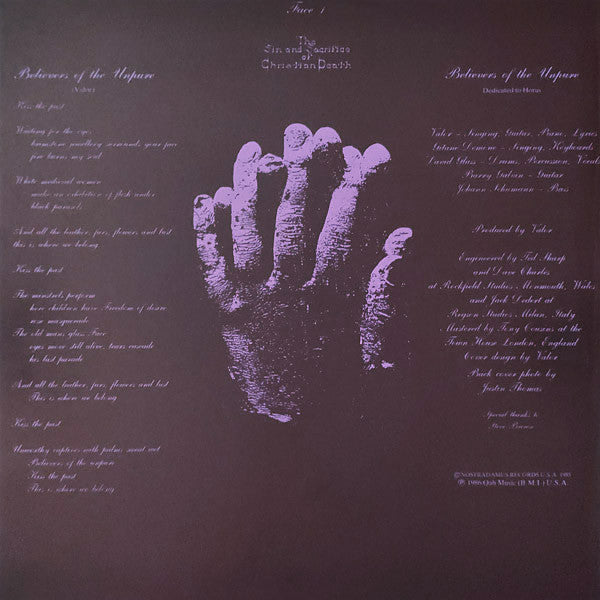 Face 1
The
Sin and Sacrifice
of
Christian Death
Believers of the Unpure
(Valor)
Kiss the past
Waiting for the eyes
brimstone jewellery surrounds your face
fire burns my soul
White medieval women
make an exhibition of flesh under
black parasols
And all the leather, furs, flowers and lust
this is where we belong
Kiss the past
The minstrels perform
here children have Freedom of desire
rose masquerade
The old mans glass Face
eyes move still alive, tears cascade
his last parade
And all the leather, furs, flowers and lust
This is where we belong
Kiss the past
Unworthy captives with palms sweat wet
Believers of the unpure
Kiss the past
This is where we belong
Believers of the Unpure
Dedicated to Horus
Valor - Singing, Guitar, Piano, Lyrics
Gitane Demone - Singing, Keyboards
David Glass - Drums, Percussion, Vocals
Barry Galvin - Guitar
Johann Schumann - Bass
Produced by Valor
Engineered by Ted Sharp
and Dave Charles
at Rockfield Studios, Monmouth, Wales
and Jack
at
Regson Studios, Milan, Italy
Mastered by Tony Cousens at the
Town House London, England
Cover design by Valor
Back cover photo by
Justin Thomas
Special thanks to
Steve Brown
© NOSTRADAMUS RECORDS U.S.A. 1985
℗ 1986 Qub Music (B.M.I.) U.S.A.